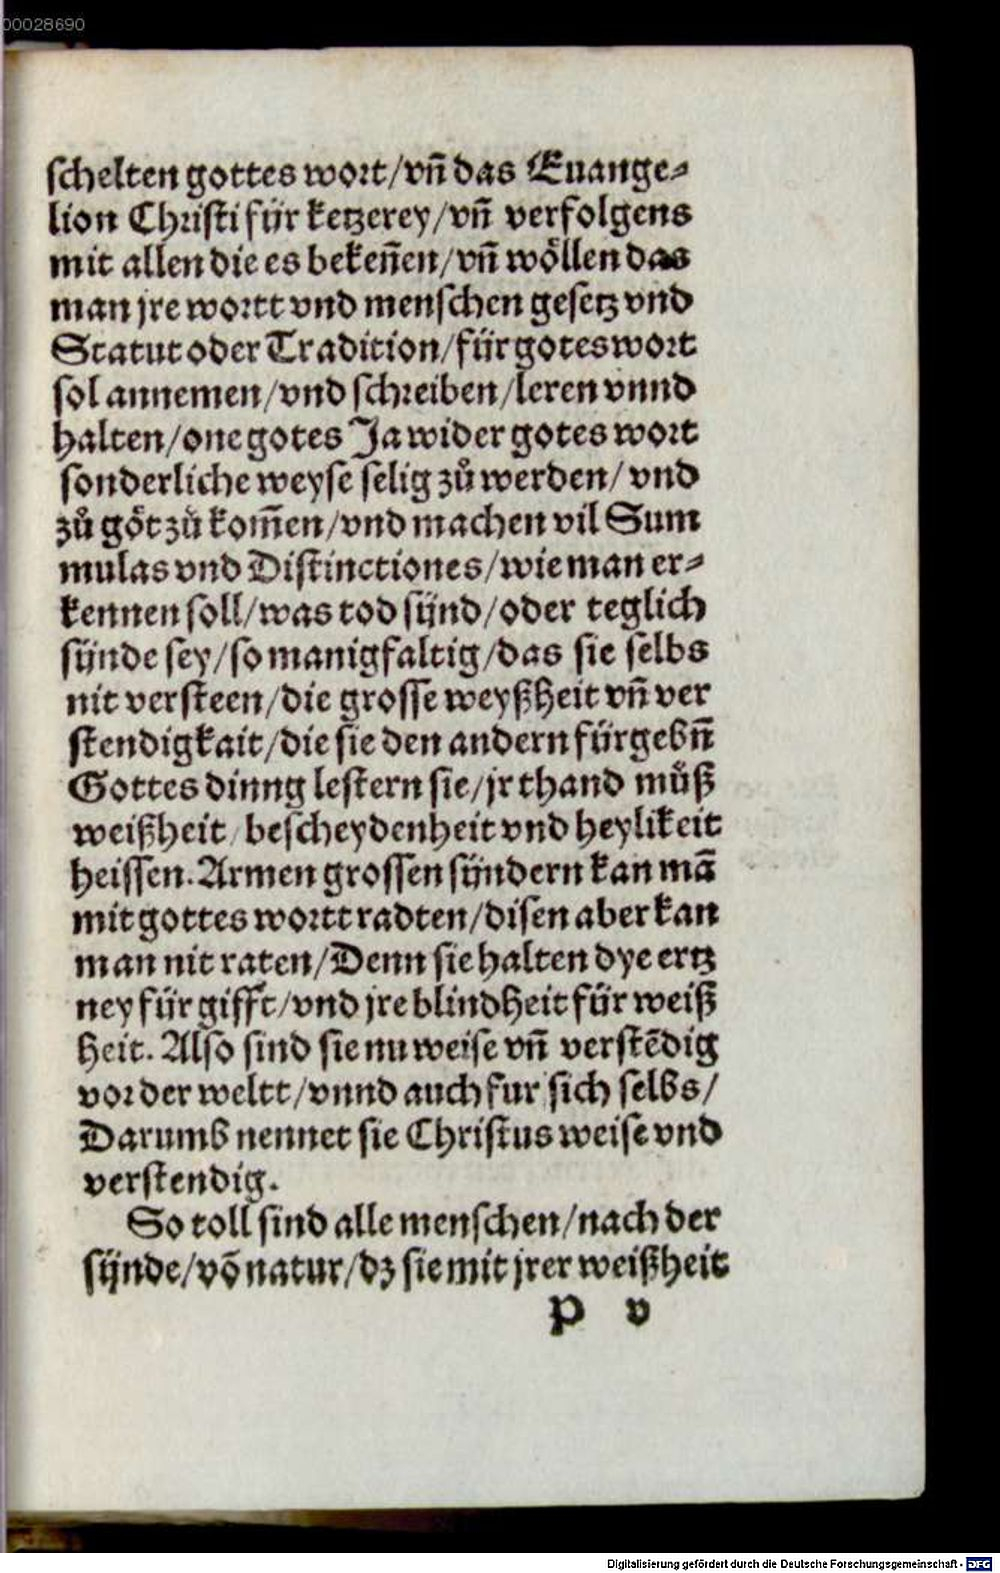 00028690
schelten gottes wort/vn̄ das Euange⸗
lion Christi für ketzerey/vn̄ verfolgens
mit allen die es beken̄en/vn̄ wöllen das
man jre wortt vnd menschen gesetz vnd
Statut oder Tradition/für gotes wort
sol annemen/vnd schreiben/leren vnnd
halten/one gotes Ja wider gotes wort
sonderliche weyse selig zů werden/vnd
zů göt zů kom̄en/vnd machen vil Sum
mulas vnd Distinctiones/wie man er⸗
kennen soll/was tod sünd/oder teglich
sünde sey/so manigfaltig/das sie selbs
nit versteen/die grosse weyßheit vn̄ ver
stendigkait/die sie den andern fürgebn̄
Gottes dinng lestern sie/jr thand můß
weißheit/bescheydenheit vnd heylikeit
heissen. Armen grossen sündern kan mā
mit gottes wortt radten/disen aber kan
man nit raten/Denn sie halten dye ertz
ney für gifft/vnd jre blindheit für weiß
heit. Also sind sie nu weise vn̄ verstēdig
vor der weltt/vnnd auch fur sich selbs/
Darumb nennet sie Christus weise vnd
verstendig.
So toll sind alle menschen/nach der
sünde/vō natur/dz sie mit jrer weißheit
P v
Digitalisierung gefördert durch die Deutsche Forschungsgemeinschaft - DFG